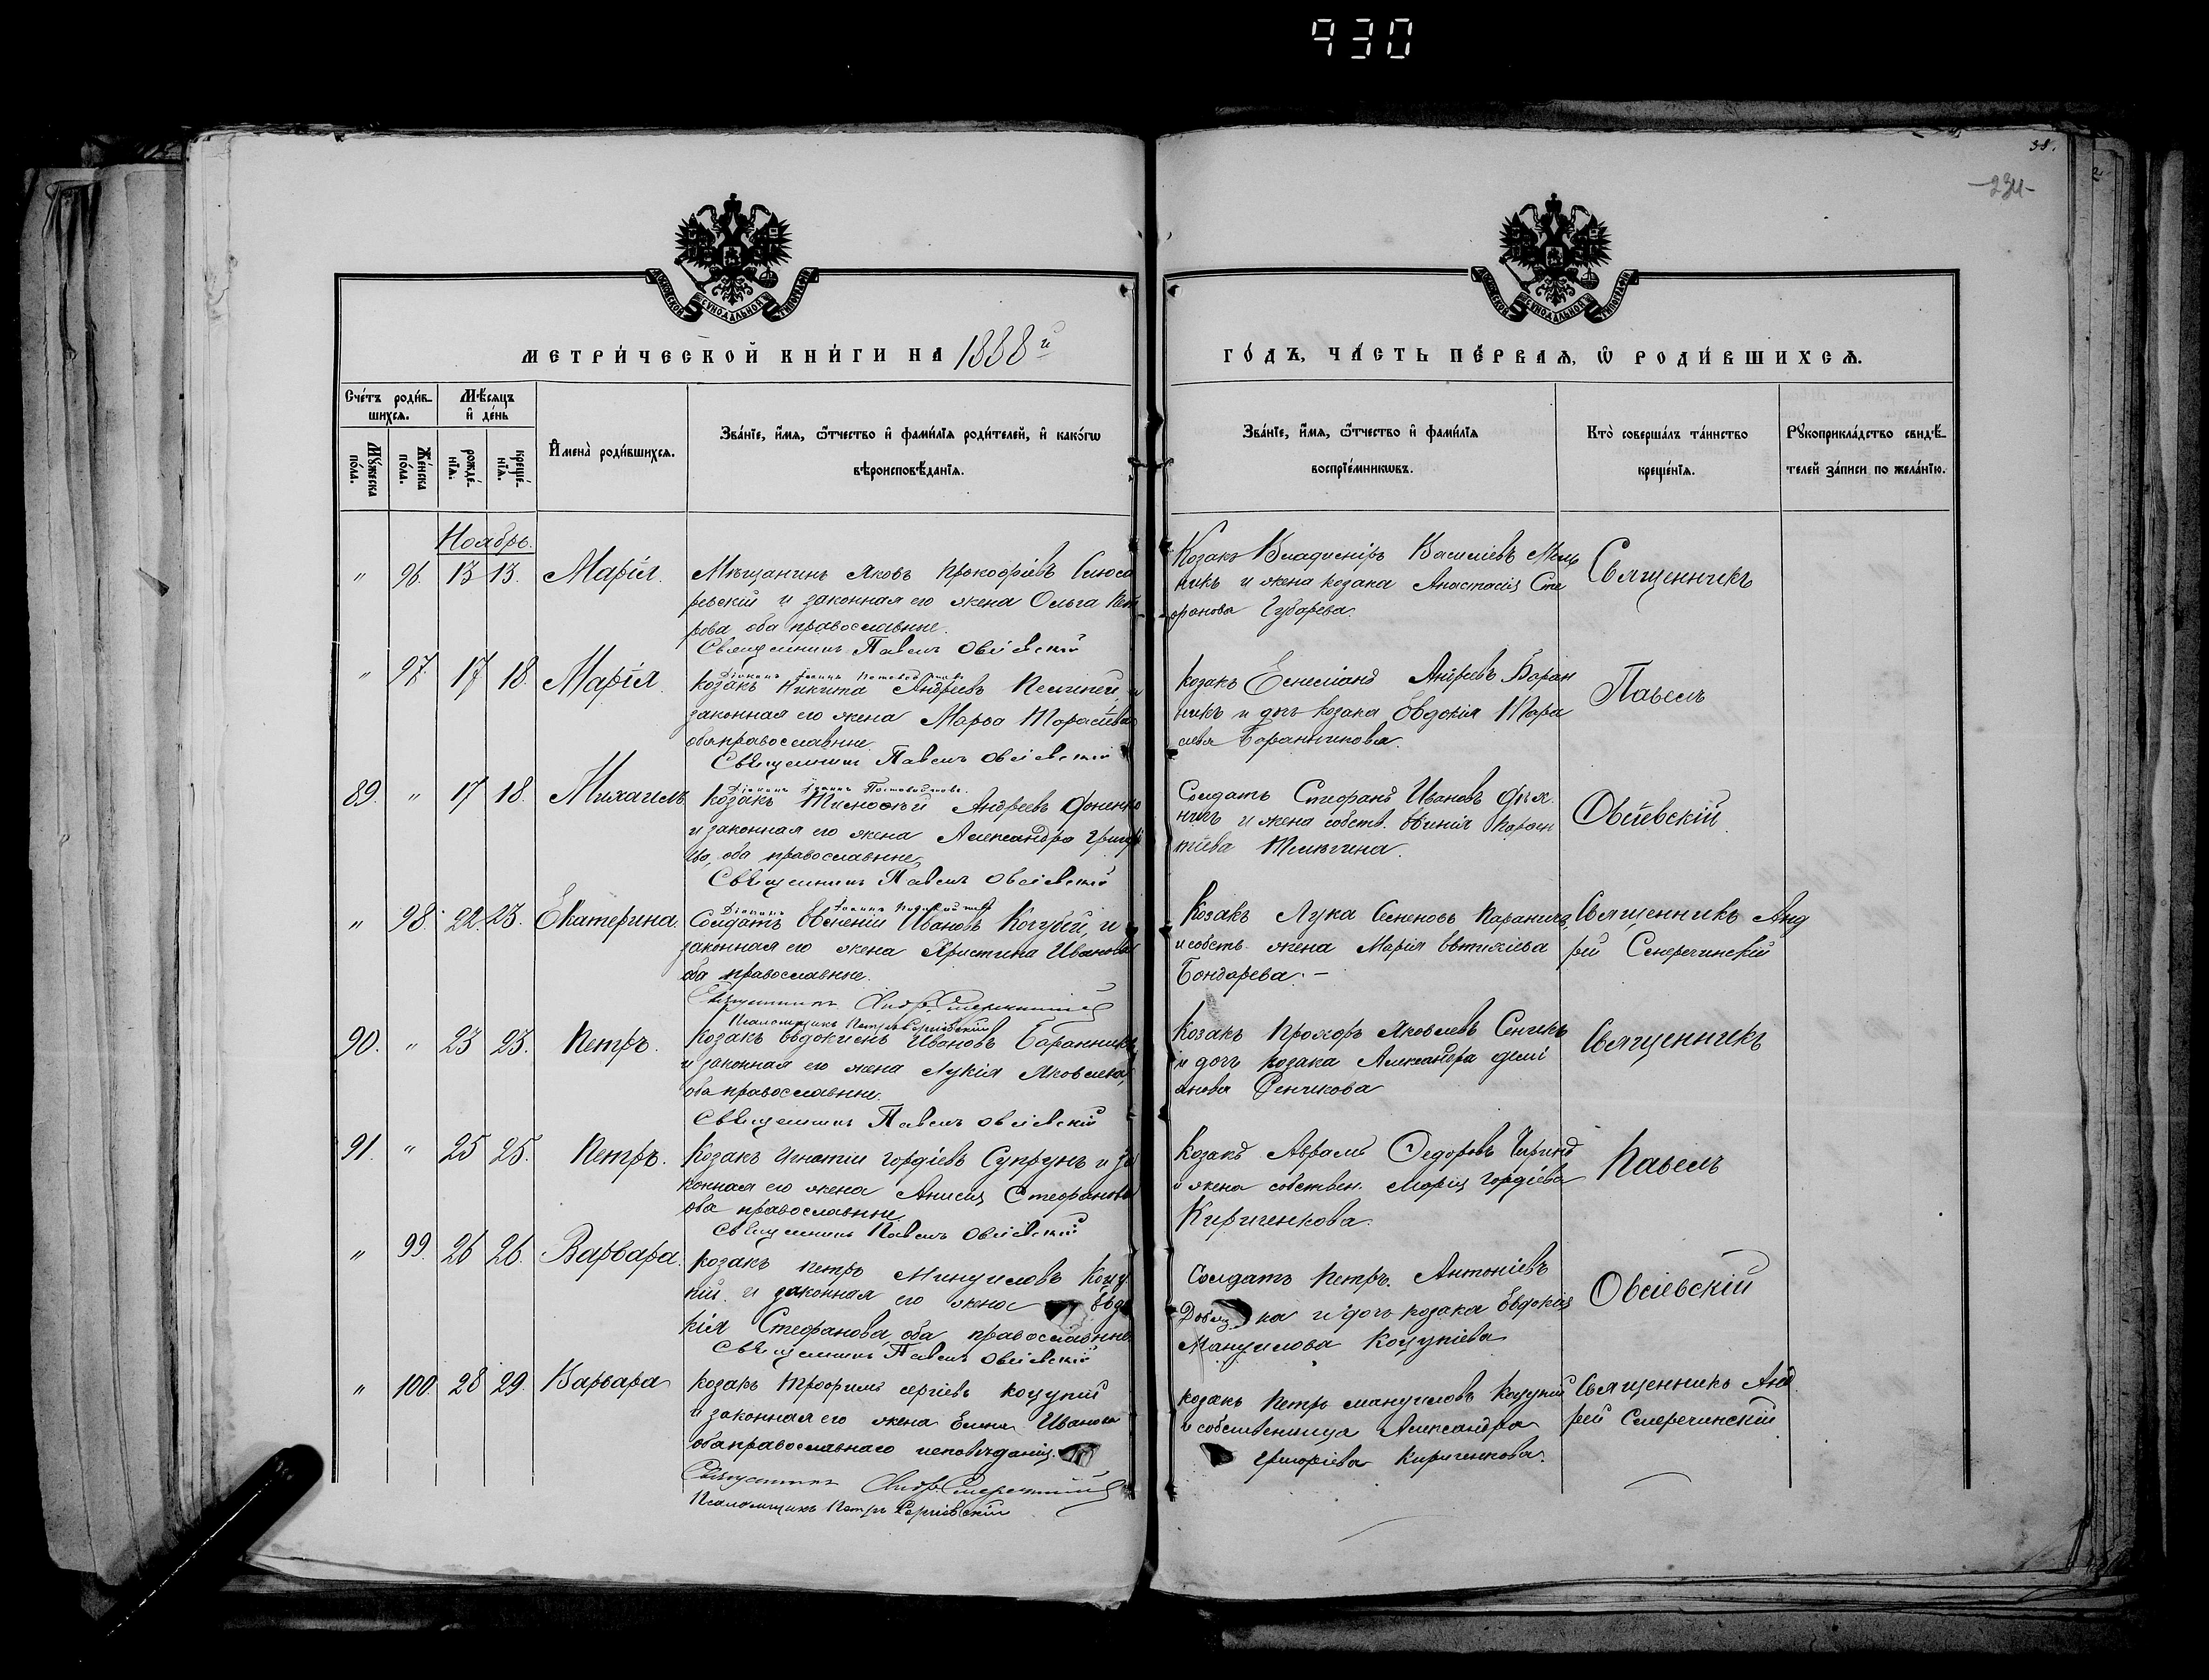 930
38.
234
МОСКОВСКОЙ СѴНОДАЛЬНОЙ ТИПОГРАФІИ
МОСКОВСКОЙ СѴНОДАЛЬНОЙ ТИПОГРАФІИ
МЕТРИ́ЧЕСКОЙ КНИ́ГИ НА 1888й
ГО́ДЪ, ЧА́СТЬ ПЕ́РВАЯ, Ѡ РОДИ́ВШИХСЯ.
Сче́тъ роди́в-
шихся.
Мѣ́сяцъ
и҆ де́нь
Му́жеска
по́ла.
Же́нска
по́ла.
рожде́-
нїя.
креще́-
нїя.
И҆мена̀ роди́вшихся.
Зва́нїе, и҆́мя, ѻ҆́тчество и҆ фами́лїя роди́телей, и҆ како́гѡ
вѣроисповѣ́данїя.
Зва́нїе, и҆́мя, ѻ҆́тчество и҆ фами́лїя
воспрїе́мникѡвъ.
Кто̀ соверша́лъ та́инство
креще́нїя.
Рꙋкоприкла́дство свидѣ́-
телей за́писи по жела́нїю.
Ноябрь.
" 96. 13 13. Марія.
Мѣщанинъ Яковъ Прокофіевъ
и законная его жена Ольга Пет
рова оба православные.
Священникъ Павелъ Овсіевскій
Козакъ Владиміръ Василіевъ Мель
никъ и жена козака Анастасія Сте
фанова Губарева.
Священникъ
" 97. 17 18. Марія.
Діаконъ Іоаннъ
Козакъ Никита Андреевъ
законная его жена Марѳа Тарасіева
оба православные.
Священникъ Павелъ Овсіевскій
Козакъ Андреевъ Баран
никъ и дочь козака Евдокія Тара
сіева Баранникова.
Павелъ
89. " 17 18. Михаилъ
Діаконъ Іоаннъ
Козакъ Тимоѳей Андреевъ
и законная его жена Александра
оба православные,
Священникъ Павелъ Овсіевскій
Солдатъ Стефанъ Ивановъ
и жена собств.
Овсіевскій
" 98. 22. 23. Екатерина.
Діаконъ Іоаннъ
Солдатъ Евменій Ивановъ Кочубей, и
законная его жена Христина Иванова
оба православные.
Священникъ Андр. Смеречинскій
Козакъ Лука Семеновъ
и собств. жена Марія Евтихіева
Бондарева. –
Священникъ Анд
рей Смеречинскій
90. " 23 23. Петръ.
Псаломщикъ Петръ Сергіевскій
Козакъ Евдокимъ Ивановъ Баранникъ
и законная его жена Лукія Яковлева,
оба православные.
Священникъ Павелъ Овсіевскій
Козакъ Прохоръ Яковлевъ Сенчикъ
и дочь козака Александра Деми
анова Сенчикова
Священникъ
91. " 25 25. Петръ.
Козакъ Игнатій Гордіевъ Супрунъ и за
конная его жена Анисія Стефанова
оба православные
Священникъ Павелъ Овсіевскій
Козакъ Аврамъ Ѳедоровъ
и жена собствен. Марія Гордіева
Кириченкова.
Павелъ
" 99. 26 26. Варвара.
Козакъ Петръ Мануиловъ Коцу
пій. и законная его жена Евдо
кія Стефанова, оба православные
Священникъ Павелъ Овсіевскій
Солдатъ Петръ. Антоніевъ
ка и дочь козака Евдокія
Мануилова Коцупіева
Овсіевскій
" 100 28 29. Варвара
Козакъ Трофимъ Сергіевъ Коцупій
и законная его жена Елена Иванова
оба православнаго исповѣданія.
Священникъ Андр. Смеречинскій
Псаломщикъ Петръ Сергіевскій
Козакъ Петръ Мануиловъ Коцупій
и собственница Александра
Григоріева Кириченкова.
Священникъ Анд
рей Смеречинскій